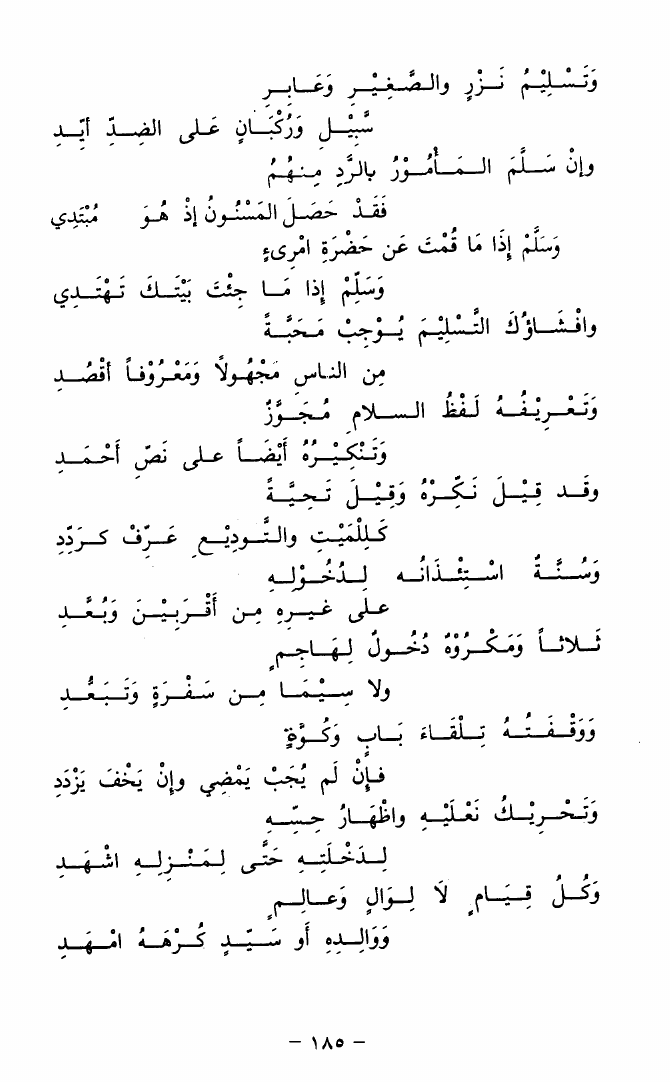 وَتَسْلِيْمُ نَزْرٍ والصَّغِيْرِ وَعَابِرِ
سَّبِيْلِ وَرُكْبَانٍ عَلى الضِدِّ أيِّدِ
وإنْ سَلَّمَ المَأمُوْرُ بالرَّدِ مِنهُمُ
فَقَدْ حَصَلَ المَسْنُونُ إذْ هُوَ مُبْتَدِي
وَسَلِّمْ إذَا مَا قُمْتَ عَن حَضْرَةِ امْرِىءٍ
وَسَلِّمْ إذا مَا جِئْتَ بَيْتَكَ تَهْتَدِي
وافْشَاؤكَ التَّسْلِيْمَ يُوْجِبْ مَحَبَّةً
مِن الناسِ مَجْهُولاً وَمَعْرُوفاً أقْصُدِ
وَتَعْرِيْفُهُ لَفْظُ السلامِ مُجَوَّزٌ
وَتَنْكِيْرُهُ أيْضَاً على نَصِّ أحْمَدِ
وقَد قِيْلَ نَكِّرْهُ وَقِيْلَ تَحِيَّةً
كَلِلْمَيْتِ والتَّودِيْعِ عَرِّفْ كَرَدِّدِ
وَسُنَةٌ اسْتِئْذَانُه لِدُخُوْلِهِ
على غيرهِ مِن أقْرَبِيْنَ وَبُعَّدِ
ثَلاثاً وَمَكْرُوْهٌ دُخُولٌ لِهَاجِمٍ
ولا سِيَّمَا مِن سَفْرَةٍ وَتَبَعُّدِ
وَوَقْفَتُهُ تِلْقَاءَ بَابٍ وَكُوَّةٍ
فإنْ لَم يُجَبْ يَمْضِي وإنْ يَخْفَ يَزْدَدِ
وَتَحْرِيْكُ نَعْلَيْهِ واظْهَارُ حِسِّهِ
لِدَخْلَتِهِ حَتَّى لِمَنْزِلِهِ اشْهَدِ
وَكُلُ قِيَامٍ لاَ لِوَالٍ وَعَالِمٍ
وَوَالِدِهِ أو سَيِّدٍ كُرْهَهُ امْهَدِ
– ١٨٥ –